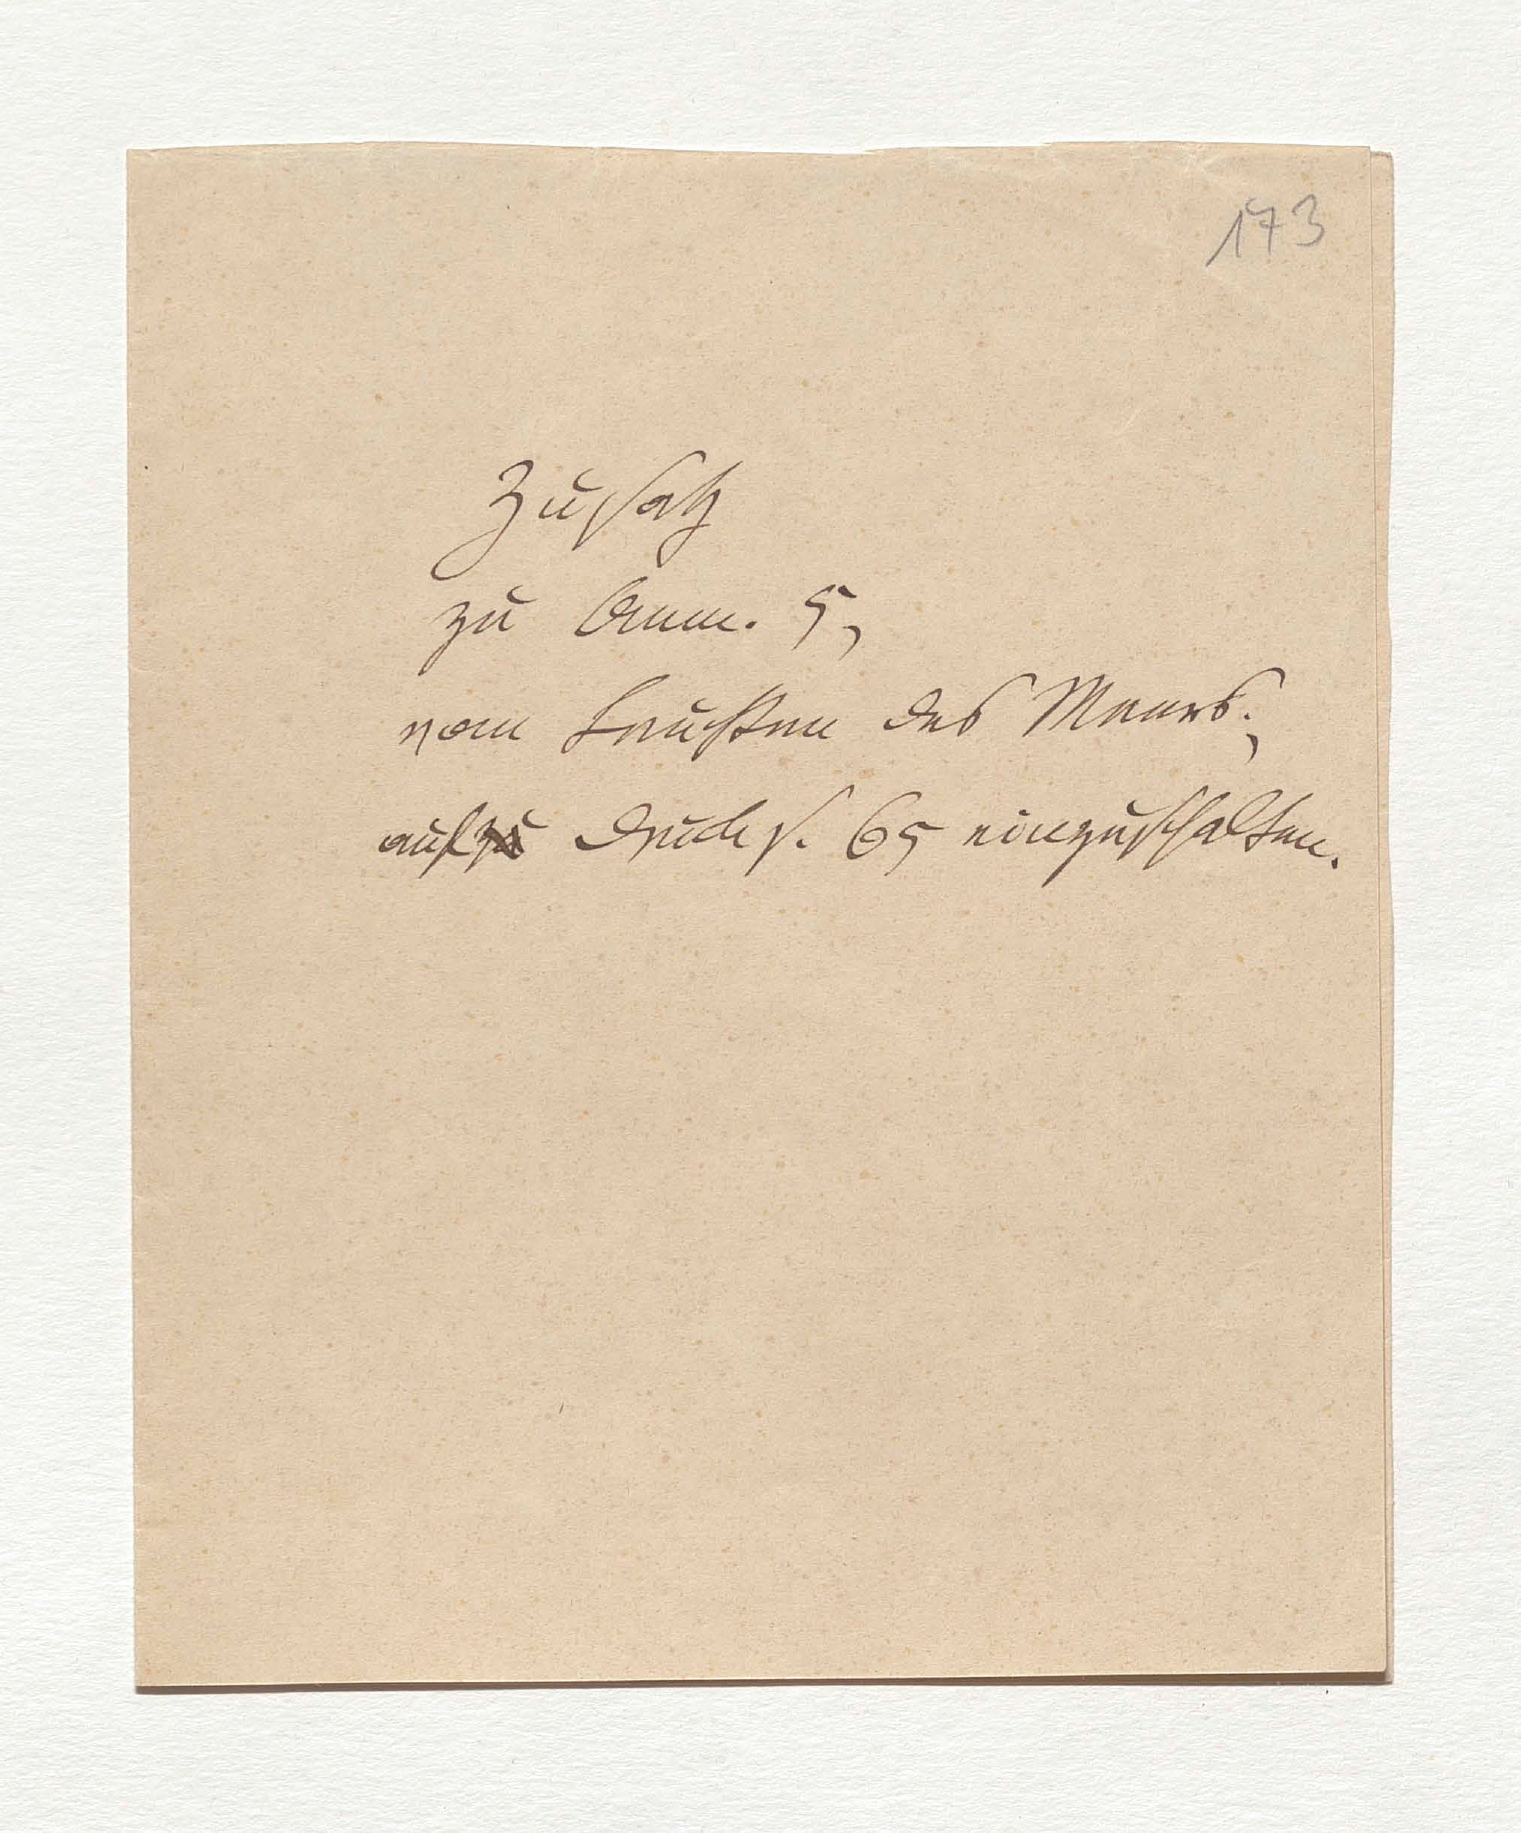 173
Zusatz
zu Anm. 5,
vom Leuchten des Meers;
auf zu Druck S. 65 einzuschalten.